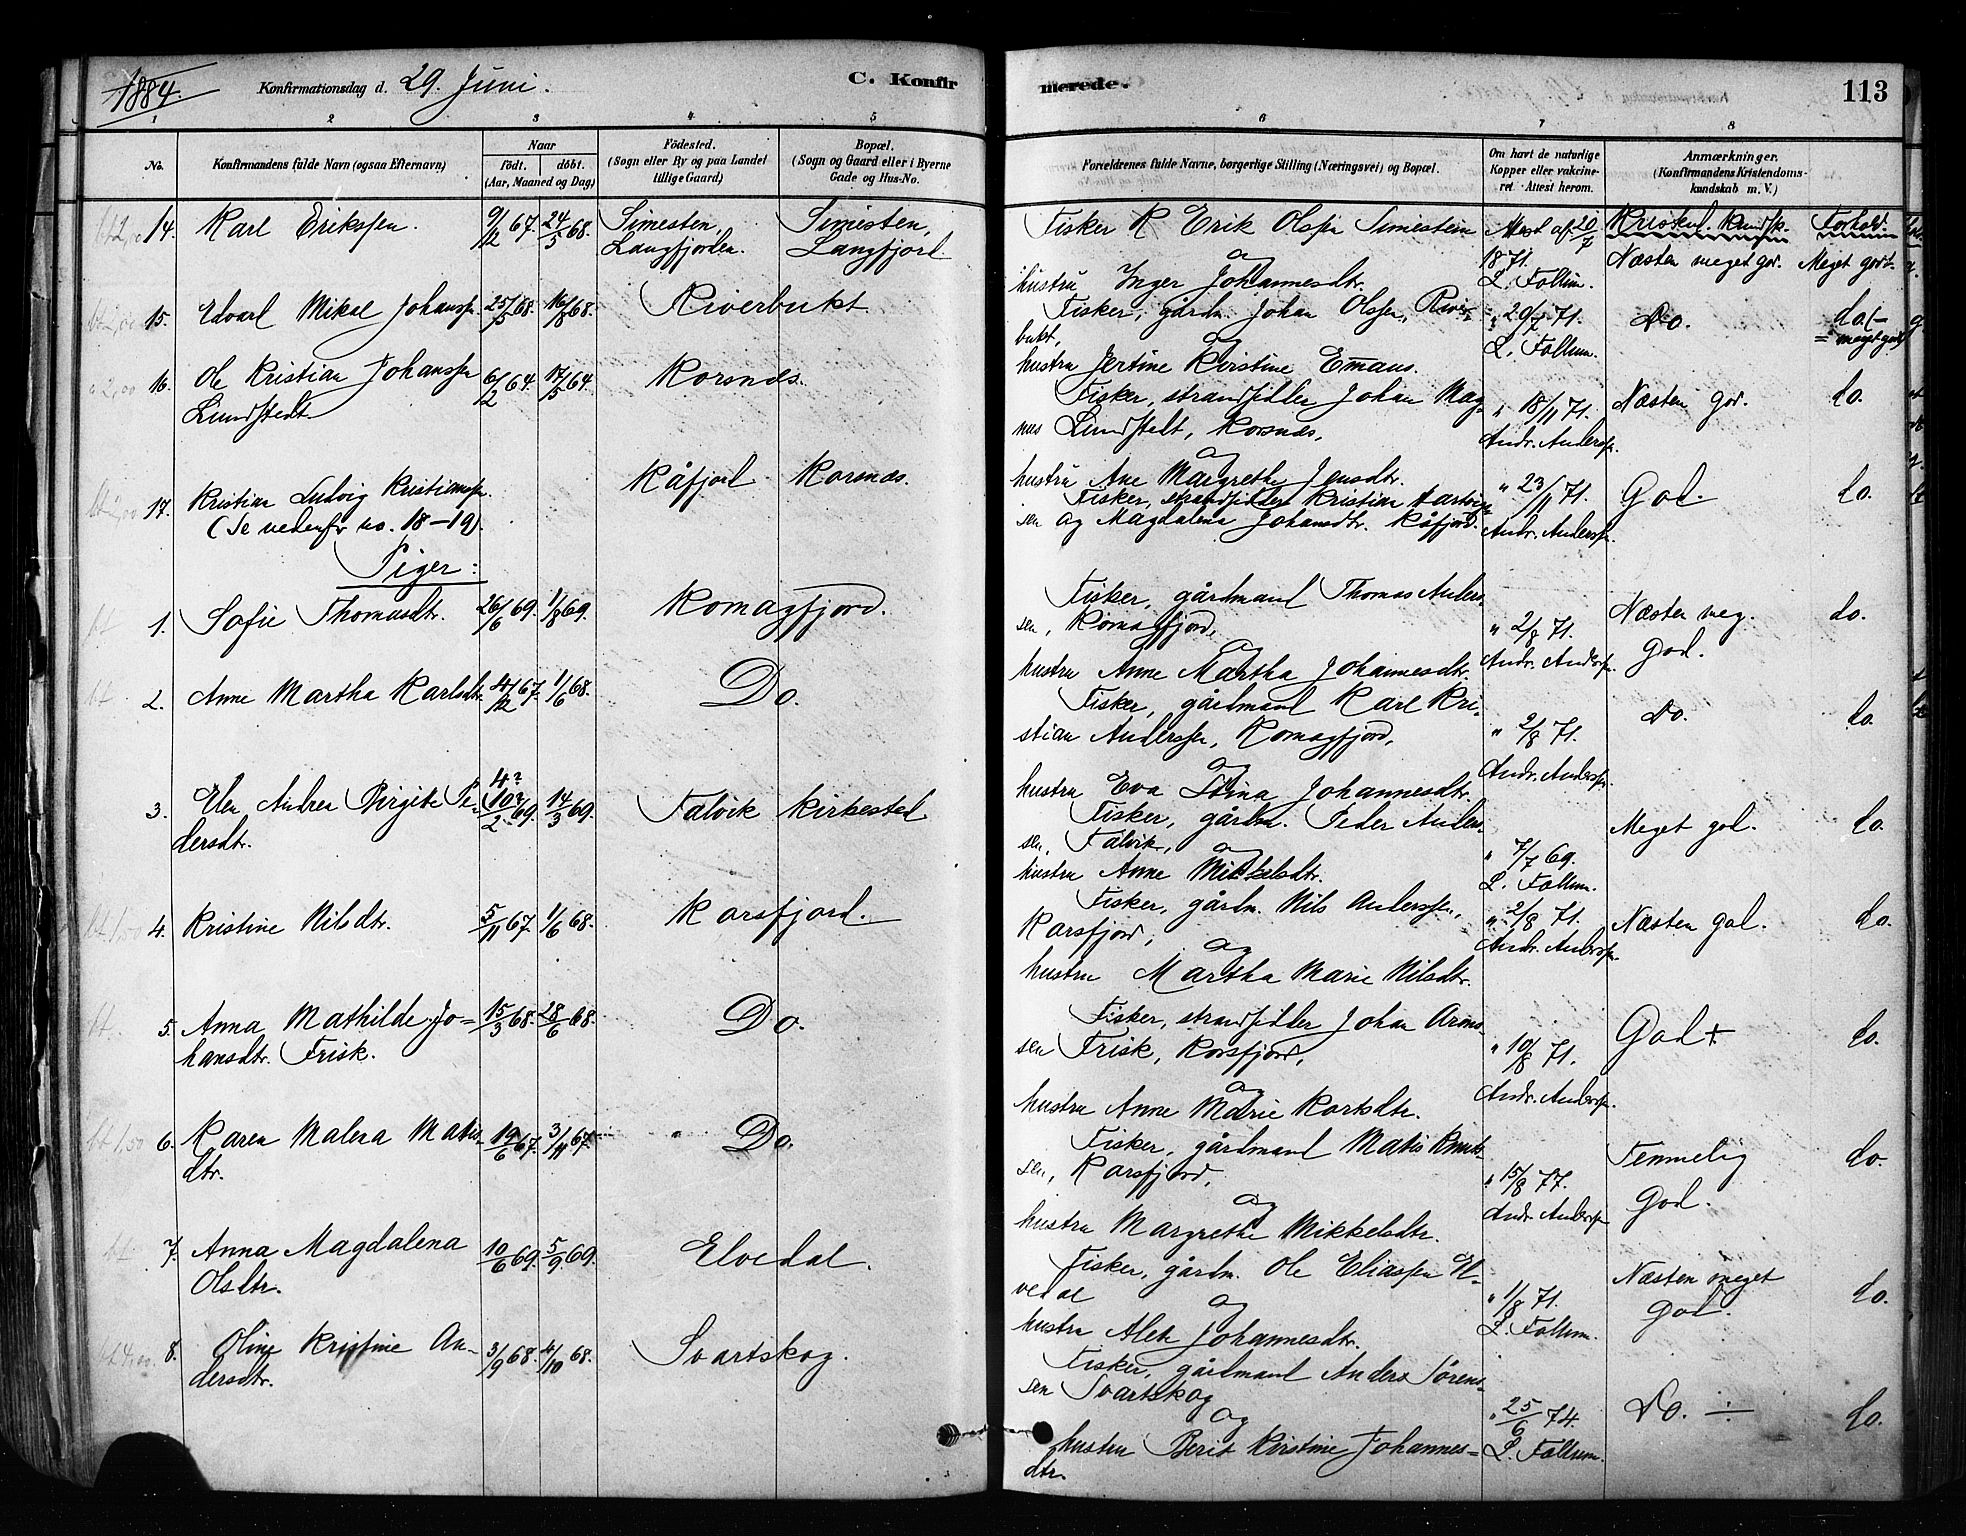 1884.
Konfirmationsdag d. 29. Juni.
C. Konfir
merede.
113
1 2 3 4 5 6 7 8
No.
Konfirmandens fulde Navn (ogsaa Efternavn)
Naar
Födt. döbt.
(Aar, Maaned og Dag)
Födested.
(Sogn eller By og paa Landet
tillige Gaard)
Bopæl.
(Sogn og Gaard eller i Byerne
Gade og Hus-No.
Forældrenes fulde Navne, borgerlige Stilling (Næringsvei) og Bopæl.
Om havt de naturlige
Kopper eller vakcine-
ret. Attest herom.
Anmærkninger.
(Konfirmandens Kristendoms-
kundskab m. V.)
14. Karl Erikssen 9/12 67. 24/5 68. Simesten, Langfjorden Simesten, Langfjord
Fisker K Erik Olssen Simesten
og
hustru Inger Johannesdtr.
Attest af 20/7
1871.
L. Follum.
Kriskul. kundsk. Forhold.
Næsten meget god. Meget godt.
15. Edvard Mikal Johanssen 25/5 68. 16/8 68. Riverbukt
Fisker, gårdm. Johan Olssen, River-
bukt,
og
hustru Jertine Kirstine Emaus.
" 20/7 71.
L. Follum.
Do. do (-
= meget godt
16. Ole Kristian Johanssen
Lundstedt 6/2 64. 17/5 64. Korsnes.
Fisker, strandsidder Johan Mag-
nus Lundstedt, Korsnes,
og
hustru Ane Margrethe Jensdtr.
" 18/11 71.
Andr. Anderssen
Næsten god. do.
17. Kristian Ludvig Kristianssen
(Se nedenfr no. 18-19). Kåfjord Korsnes.
Fisker, strandsidder Kristian Hartvig-
sen og Magdalena Johansdtr. Kåfjord.
" 23/11 71.
Andr. Anderssen.
God. do.
Piger:
1. Sofie Thomasdtr. 26/6 69. 1/8 69. Komagfjord.
Fisker, gårdmand Thomas Anders-
sen, Komagfjord,
og
hustru Anne Martha Johannesdtr.
" 2/8 71.
Andr. Anderssen
Næsten meg.
God. do.
2. Anne Martha Karlsdtr. 4/12 67. 1/6 68. Do.
Fisker, gårdmand Karl Kri-
stian Anderssen, Komagfjord,
og
hustru Eva Stina Johannesdtr.
" 2/8 71.
Andr. Anderssen
Do. do.
3. Elen Andrea Birgite Pe-
dersdtr. 4? (10?/2 69. 14/3 69. Talvik kirkested
Fisker, gårdm. Peder Anders-
sen, Talvik,
og
hustru Anne Mikkelsdtr.
" 7/7 69.
L. Follum.
Meget god. do.
4. Kristine Nilsdtr. 5/11 67. 1/6 68. Korsfjord.
Fisker, gårdm. Nils Anderssen,
Korsfjord,
og
hustru Martha Marie Nilsdtr.
" 2/8 71.
Andr. Anderssen
Næsten god. do.
5. Anna Mathilde Jo-
hansdtr. Frisk. 15/3 68. 28/6 68. Do.
Fisker, strandsidder Johan Arons-
sen Frisk, Korsfjord,
og
hustru Anne Marie Karlsdtr.
" 10/8 71.
Andr. Anderssen.
God + do.
6. Karen Malena Matis-
dtr. 19/6 67. 3/11 67. Do.
Fisker, gårdmand Matis Knuts-
sen, Korsfjord,
og
hustru Margrethe Mikkelsdtr.
" 15/8 77.
Andr. Anderssen
Temmelig
God. do.
7. Anna Magdalena
Olsdtr. 10/6 69. 5/9 69. Elvedal.
Fisker, gårdm. Ole Eliassen El-
vedal
og
hustru Alet Johannesdtr.
" 1/8 71.
L. Follum.
Næsten meget
God. do.
8. Oline Kristine An-
dersdtr. 3/9 68. 4/10 68. Svartskog.
Fisker, gårdmand Anders Sörens-
sen Svartskog
og
hustru Berit Kirstine Johannes-
dtr.
" 25/6 74.
L. Follum.
Do. ÷ do.